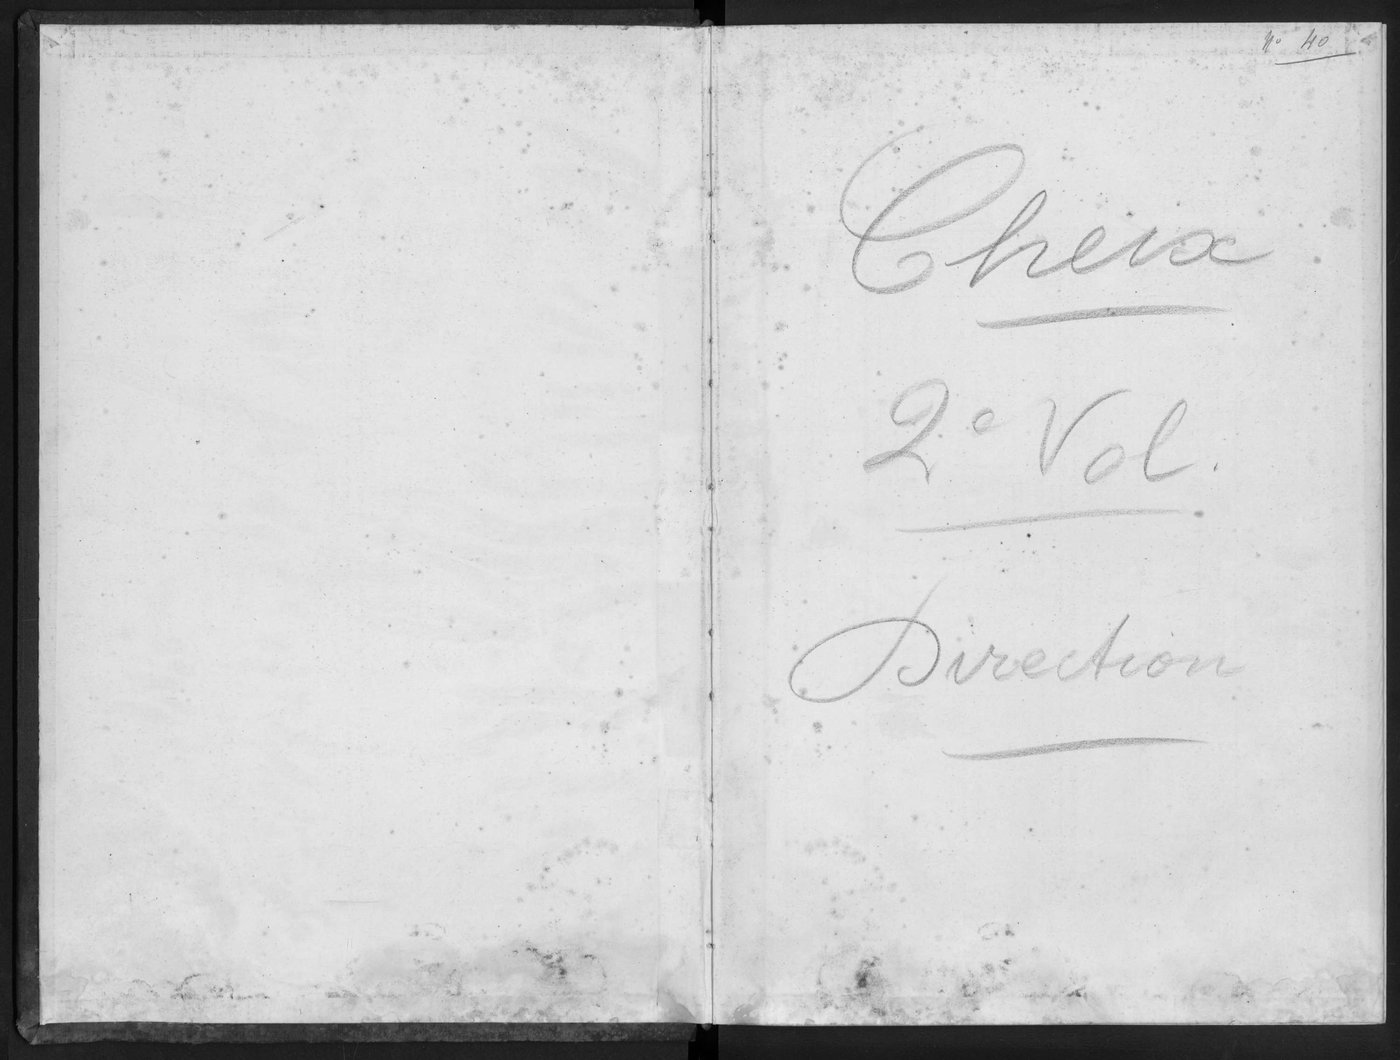 N° 40
Cheix
2e Vol.
Direction